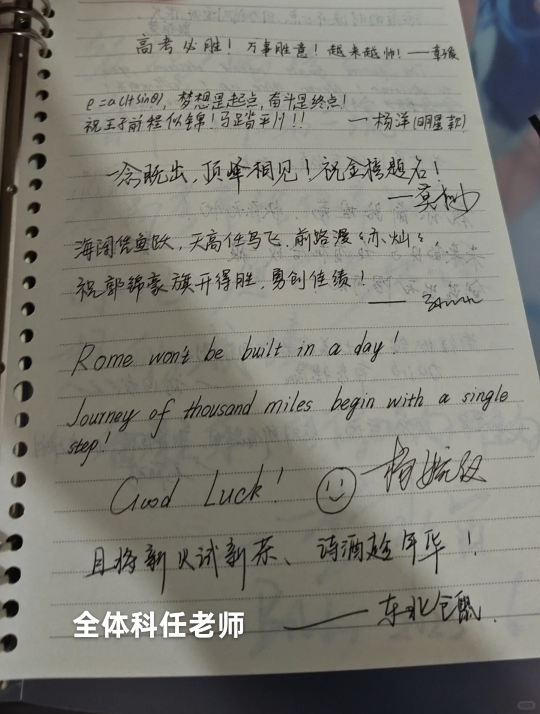 高考必胜！万事胜意！越来越帅！——章
ρ=a(1+sinθ), 梦想是起点,奋斗是终点!
祝王子前程似锦!马踏平川!! ——杨洋(明星款)
一念既出,顶峰相见!祝金榜题名!
——莫
海阔凭鱼跃,天高任鸟飞,前路漫々亦灿々
祝郭锦豪旗开得胜,勇创佳绩!
Rome won't be built in a day!
Journey of thousand miles begin with a single
step!
Good Luck!
且将新火试新茶、诗酒趁年华!
——东北仓鼠
全体科任老师